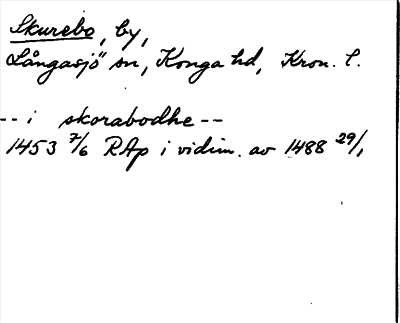 Skurebo, by,
Långasjö sn, Konga hd, Kron. l.
-- i skorabodhe --
1453 7/6 RAp i vidim. av 1488 29/1